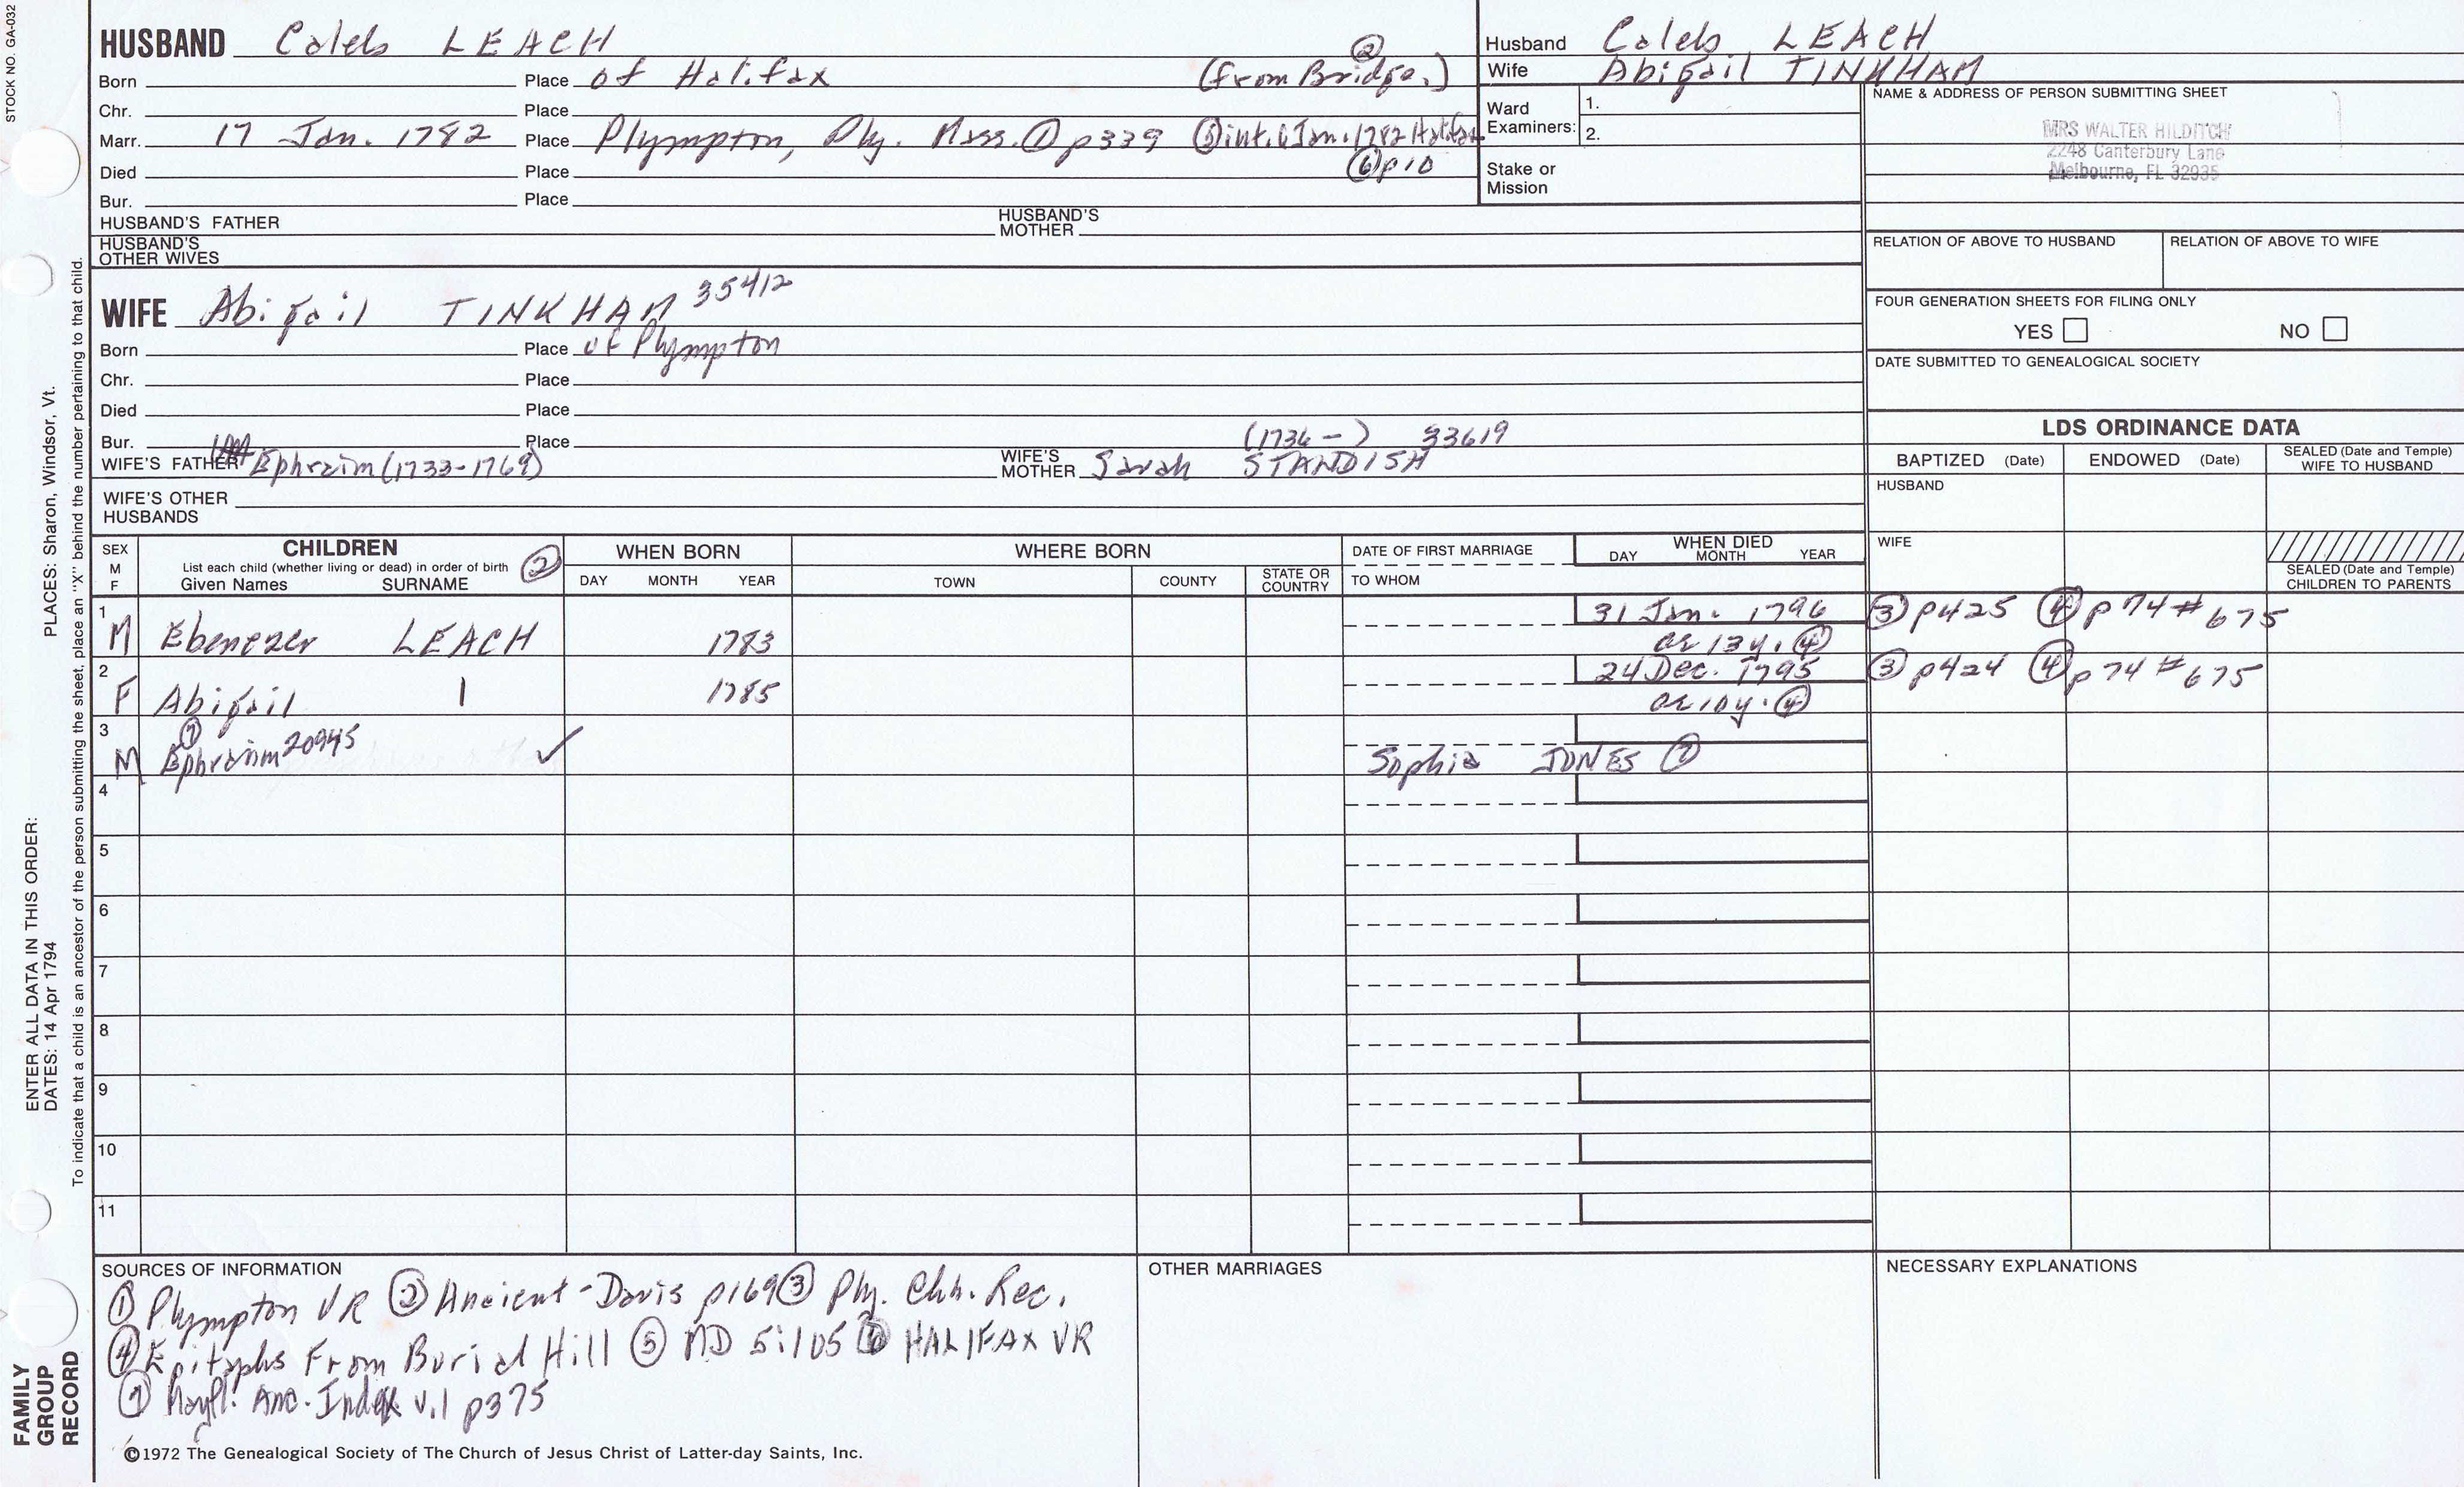 STOCK NO. GA-032
HUSBAND Caleb LEACH
Born Place of Halifax (from Bridge.) ②
Chr. Place
Marr. 17 Jan. 1782 Place Plympton, Ply. Mass. ① p339 ⑤ int. 6 Jan. 1782 Halifax
⑥ p10
Died Place
Bur. Place
HUSBAND'S FATHER HUSBAND'S MOTHER
HUSBAND'S OTHER WIVES
Husband Caleb LEACH
Wife Abigail TINKHAM
Ward Examiners: 1.
2.
Stake or Mission
NAME & ADDRESS OF PERSON SUBMITTING SHEET
MRS WALTER HILDITCH
2248 Canterbury Lane
Melbourne, FL 32935
RELATION OF ABOVE TO HUSBAND RELATION OF ABOVE TO WIFE
FOUR GENERATION SHEETS FOR FILING ONLY
YES NO
DATE SUBMITTED TO GENEALOGICAL SOCIETY
WIFE Abigail TINKHAM 35412
Born Place of Plympton
Chr. Place
Died Place
Bur. Place
WIFE'S FATHER Ephraim (1733-1769) WIFE'S MOTHER Sarah STANDISH (1736 - ) 33619
WIFE'S OTHER HUSBANDS
LDS ORDINANCE DATA
BAPTIZED (Date) ENDOWED (Date) SEALED (Date and Temple) WIFE TO HUSBAND
HUSBAND
WIFE
SEALED (Date and Temple) CHILDREN TO PARENTS
SEX M F
CHILDREN ②
List each child (whether living or dead) in order of birth
Given Names SURNAME
WHEN BORN
DAY MONTH YEAR
WHERE BORN
TOWN COUNTY STATE OR COUNTRY
DATE OF FIRST MARRIAGE
TO WHOM
WHEN DIED
DAY MONTH YEAR
1 M Ebenezer LEACH 1783 31 Jan. 1796 ③ p425 ④ p74 # 675
ae 13 y. ④
2 F Abigail | 1785 24 Dec. 1795 ③ p424 ④ p74 # 675
ae 10 y. ④
3 M Ephraim ⑦ 20945 ✓ Sophia JONES ⑦
4
5
6
7
8
9
10
11
SOURCES OF INFORMATION
① Plympton VR ② Ancient - Davis p169 ③ Ply. Chh. Rec.
④ Epitaphs From Burial Hill ⑤ MD 5:105 ⑥ HALIFAX VR
⑦ Mayfl. Anc. Index v.1 p375
OTHER MARRIAGES
NECESSARY EXPLANATIONS
©1972 The Genealogical Society of The Church of Jesus Christ of Latter-day Saints, Inc.
FAMILY GROUP RECORD
ENTER ALL DATA IN THIS ORDER:
DATES: 14 Apr 1794
PLACES: Sharon, Windsor, Vt.
To indicate that a child is an ancestor of the person submitting the sheet, place an "X" behind the number pertaining to that child.